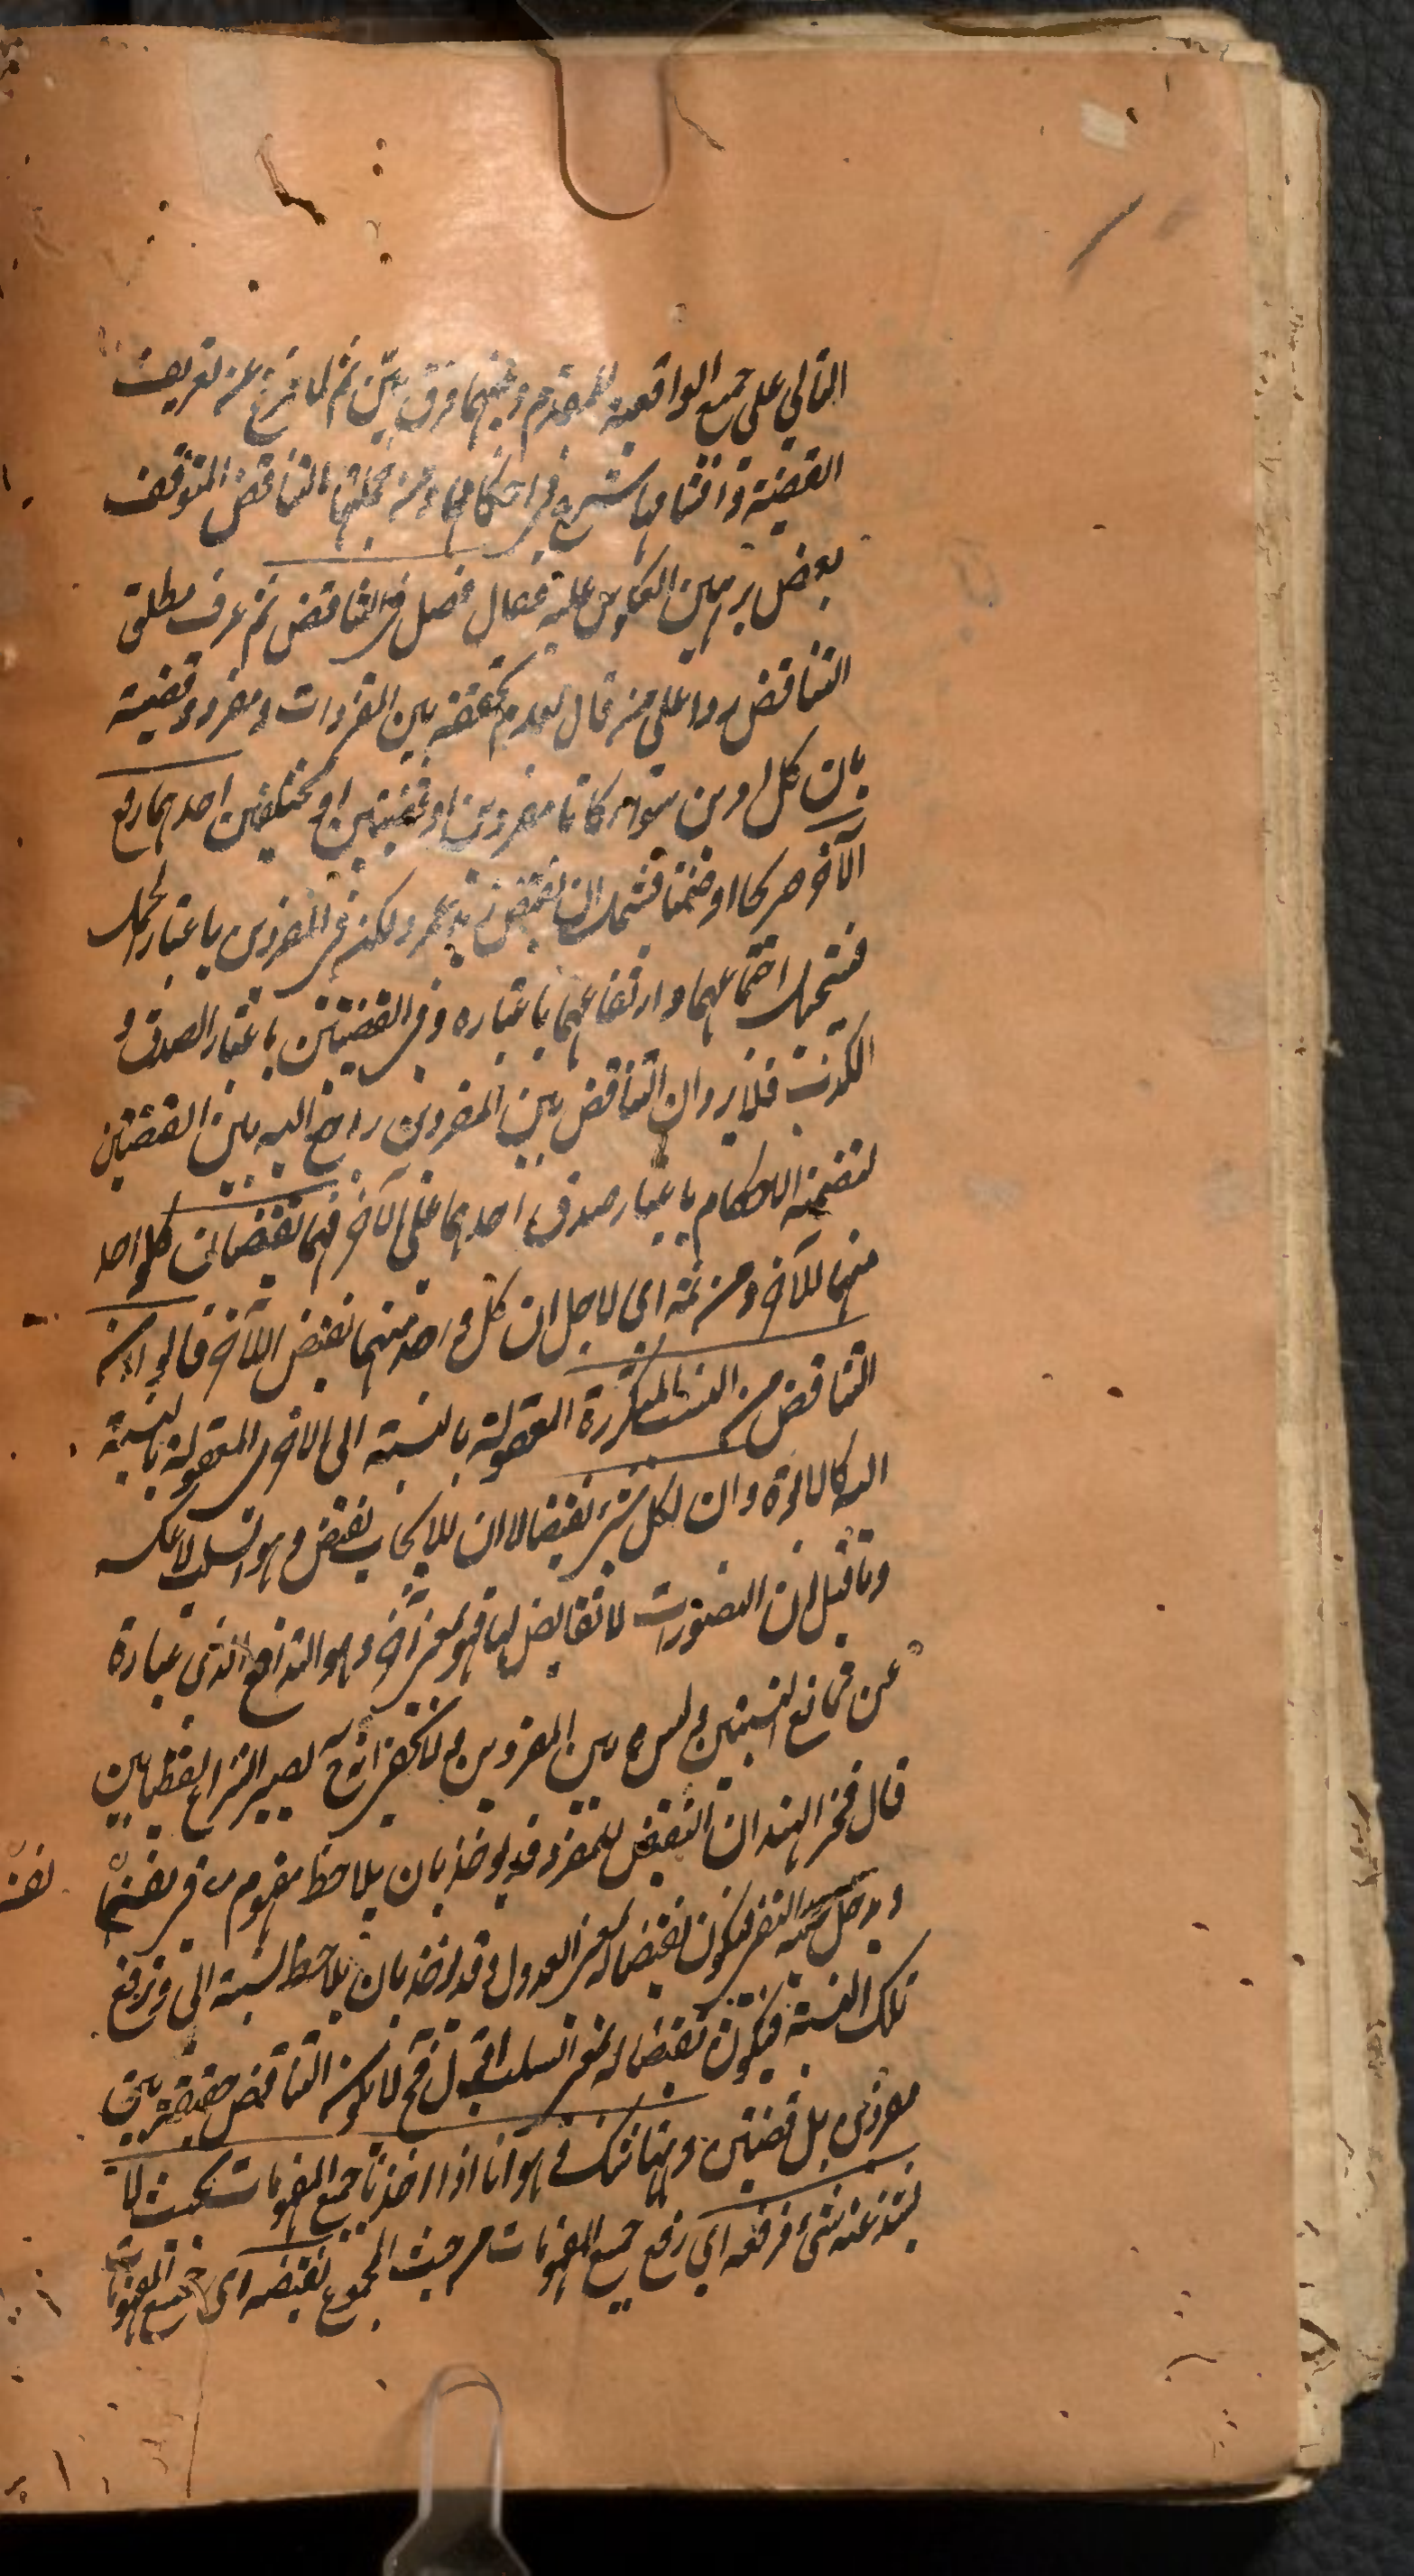 التالي على جميع الواقعية للمقدم وبينهما فرق بيّن ثم لما فرغ عن تعريف
القضية واقسامها شرع في احكامها ومن جملتها التناقض المتوقف
بعض براهين العكوس عليه فقال فصل في التناقض ثم عرف مطلق
التناقض ردا على من قال بعدم تحققه بين المفردات ومفرد وقضية
بان كل امرين سواء كانا مفردين او قضيتين او مختلفين احدهما رفع
الآخر صريحا او ضمنا فشمل ان نقيض زيد عمرو لكن في المفردين باعتبار الحمل
فيستحيل اجتماعهما وارتفاعهما باعتباره وفي القضيتين باعتبار الصدق و
الكذب فلا يرد ان التناقض بين المفردين راجع اليه بين القضيتين
لتضمنه الاحكام باعتبار صدق احدهما على الآخر فهما نقيضان كل واحد
منهما للآخر ومن ثمه اي لاجل ان كل واحد منهما نقيض الآخر قالوا ان
التناقض من النسب المتكررة المعقولة بالنسبة الى الاخرى المعقولة بالنسبة
اليه كالاخوة وان لكل شيء نقيضا لا ان للايجاب نقيض وهو السلب لا عكسه
وما قيل ان التصورات لا نقايض لها فهو لمعنى آخر وهو التدافع الذي عبارة
عن تمانع النسبتين وليس بين المفردين ولا يخفى انه ح يصير النزاع لفظيا بين
قال فخر الهند ان النقيض للمفرد قد يوخذ بان يلاحظ مفهوم في نفسه
ويدخل عليه النفي فيكون نقيضا له بمعنى العدول وقد يوخذ بان يلاحظ نسبته الى ويرفع
تلك النسبة فيكون نقيضا له بمعنى السلب اقول فح لا يكون التناقض حقيقة بين
مفردين بل قضيتين وههنا شك وهو انا اذا اخذنا جميع المفهومات بحيث لا
يشذ عنه شيء فرفعه اي رفع جميع المفهومات من حيث المجموع نقيضه اي جميع المفهومات